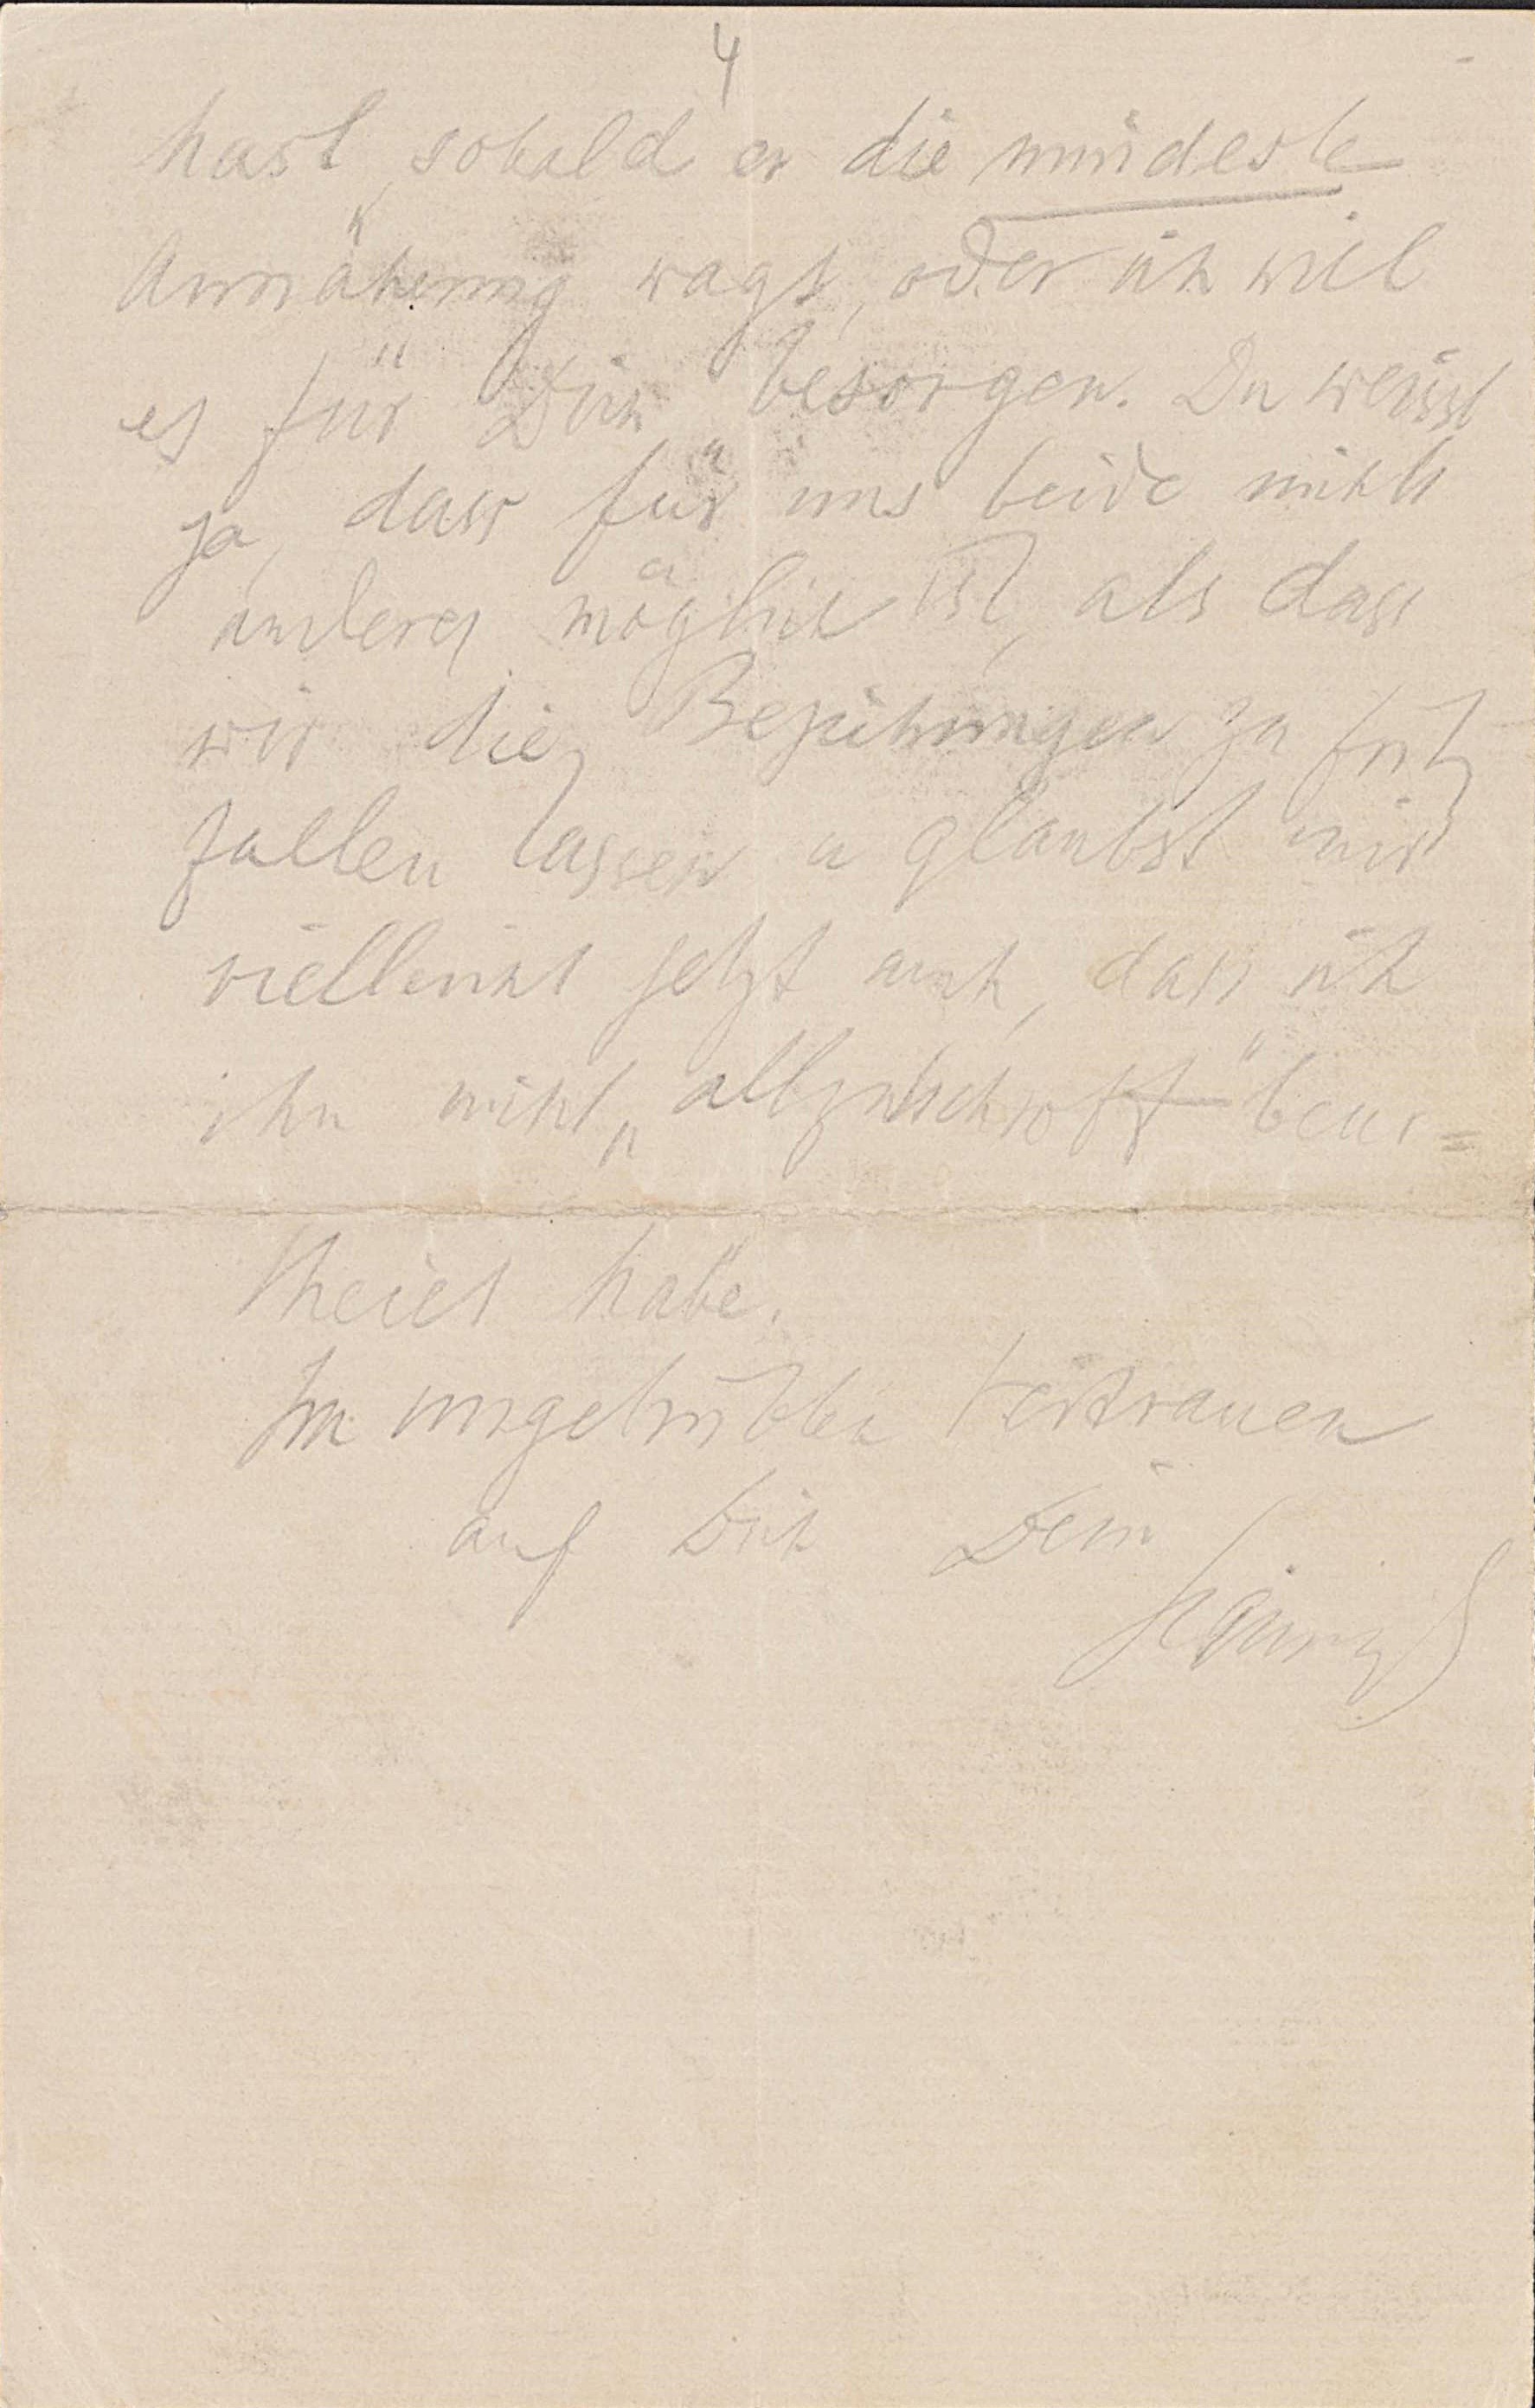 4
hast, sobald er die mindeste
Annäherung wagt, oder ich will
es für Dich besorgen. Du weisst
ja, dass für uns beide nichts
anderes möglich ist, als dass
wir die Beziehungen zu Fritz
fallen lassen u glaubst mir
vielleicht jetzt auch, dass ich
ihn nicht „allzuschroff“ beur=
theilt habe.
Im ungetrübten Vertrauen
auf Dich Dein